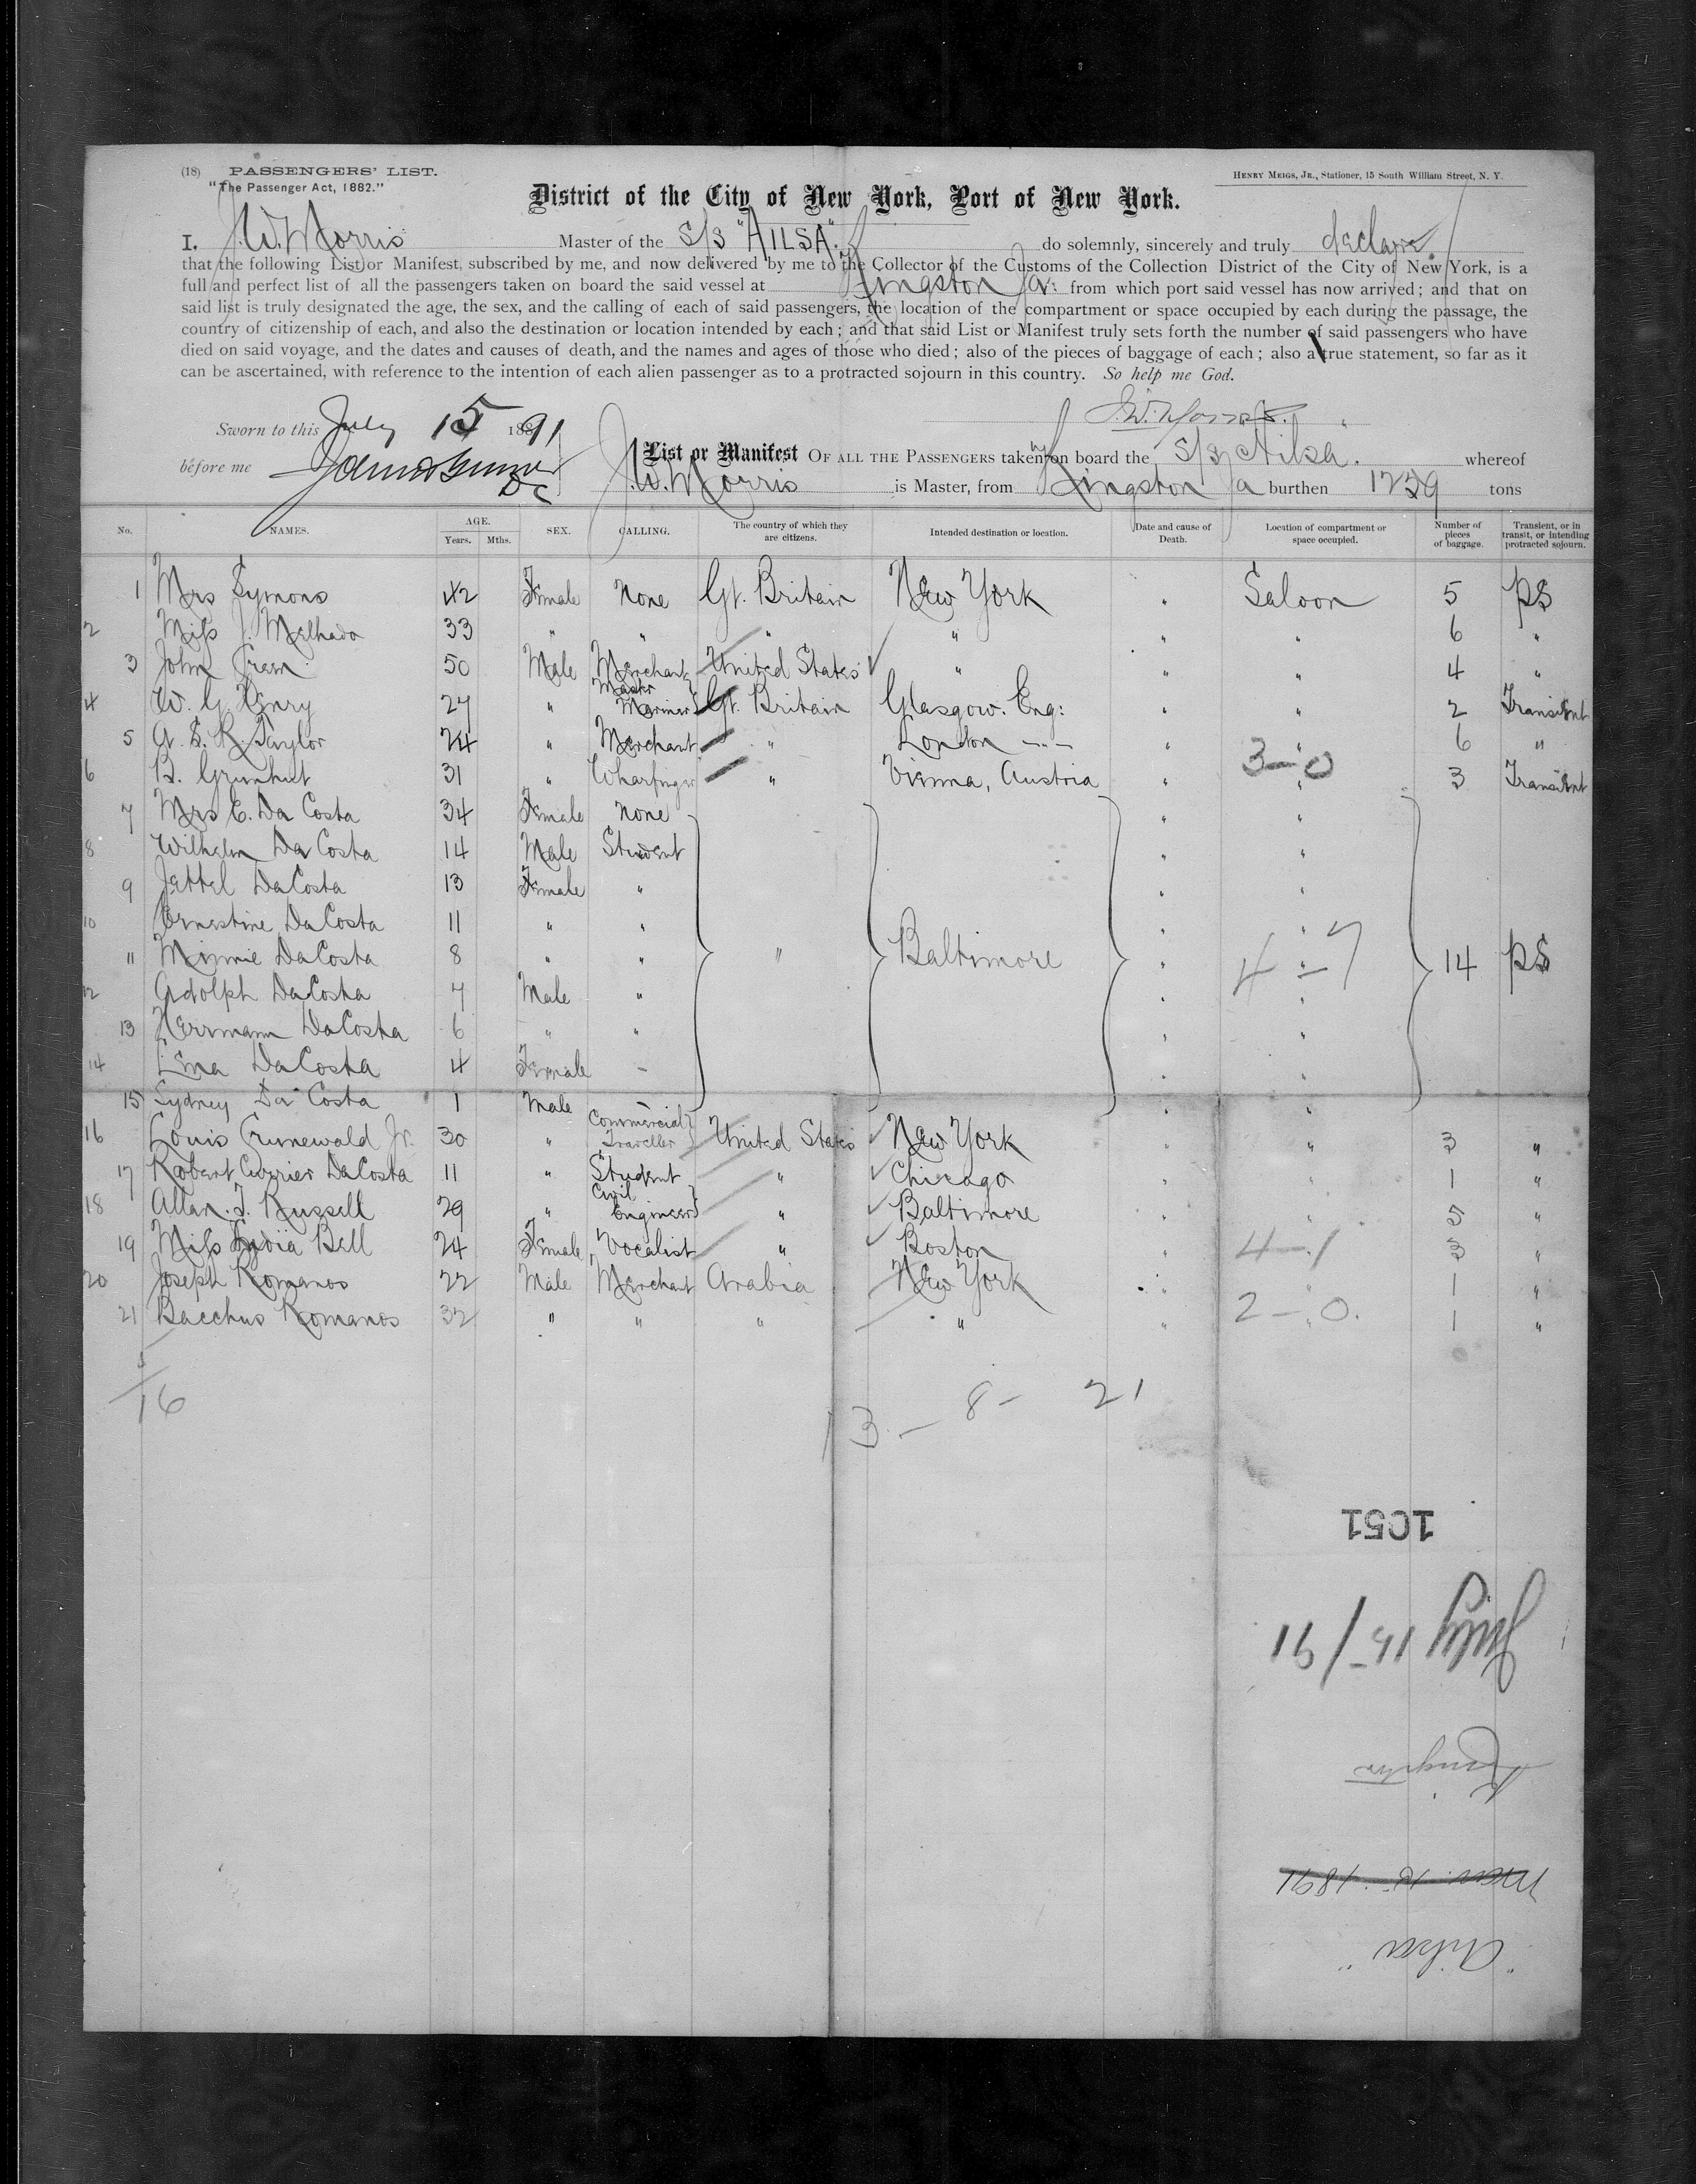 (18) PASSENGERS' LIST.
"The Passenger Act, 1882."
HENRY MEIGS, JR., Stationer, 15 South William Street, N. Y.
District of the City of New York, Port of New York.
I, J. W. Morris Master of the S/S "AILSA". do solemnly, sincerely and truly declare
that the following List or Manifest, subscribed by me, and now delivered by me to the Collector of the Customs of the Collection District of the City of New York, is a
full and perfect list of all the passengers taken on board the said vessel at Kingston Ja: from which port said vessel has now arrived; and that on
said list is truly designated the age, the sex, and the calling of each of said passengers, the location of the compartment or space occupied by each during the passage, the
country of citizenship of each, and also the destination or location intended by each; and that said List or Manifest truly sets forth the number of said passengers who have
died on said voyage, and the dates and causes of death, and the names and ages of those who died; also of the pieces of baggage of each; also a true statement, so far as it
can be ascertained, with reference to the intention of each alien passenger as to a protracted sojourn in this country. So help me God.
J. W. Morris.
Sworn to this July 15 1891
before me
List or Manifest OF ALL THE PASSENGERS taken on board the S/S Ailsa. whereof
J. W. Morris is Master, from Kingston Ja burthen 1239 tons
No. NAMES. AGE. Years. Mths. SEX. CALLING. The country of which they are citizens. Intended destination or location. Date and cause of Death. Location of compartment or space occupied. Number of pieces of baggage. Transient, or in transit, or intending protracted sojourn.
1 Mrs Symons 42 Female None Gt. Britain New York " Saloon 5 PS
2 Miss J. Melhado 33 " " " " " " 6 "
3 John Cran 50 Male Merchant United States " " " 4 "
4 W. G. Henry 27 " Master Mariner Gt. Britain Glasgow. Eng: " " 2 Transient
5 A. S. R. Taylor 24 " Merchant " London " " 6 "
6 B. Grunhut 31 " Wharfinger " Vienna, Austria " 3-0 " 3 Transient
7 Mrs E. Da Costa 34 Female None " "
8 Wilhelm Da Costa 14 Male Student " "
9 Jettel DaCosta 13 Female " " "
10 Ernestine DaCosta 11 " " " "
11 Minnie DaCosta 8 " " " Baltimore " 4-7 " 14 PS
12 Adolph DaCosta 7 Male " " "
13 Herrmann DaCosta 6 " " " "
14 Ema DaCosta 4 Female - " "
15 Sydney Da Costa 1 Male - " "
16 Louis Grunewald Jr. 30 " Commercial Traveller United States New York " " 3 "
17 Robert Currier DaCosta 11 " Student " Chicago " " 1 "
18 Allan. T. Russell 29 " Civil Engineer " Baltimore " " 5 "
19 Miss Lydia Bell 24 Female Vocalist " Boston " 4-1 3 "
20 Joseph Romanos 22 Male Merchant Arabia New York " " 1 "
21 Bacchus Romanos 32 " " " " " 2-0. 1 "
16
13 - 8 - 21
1051
July 15/91
Kingston
1891
"Ailsa"